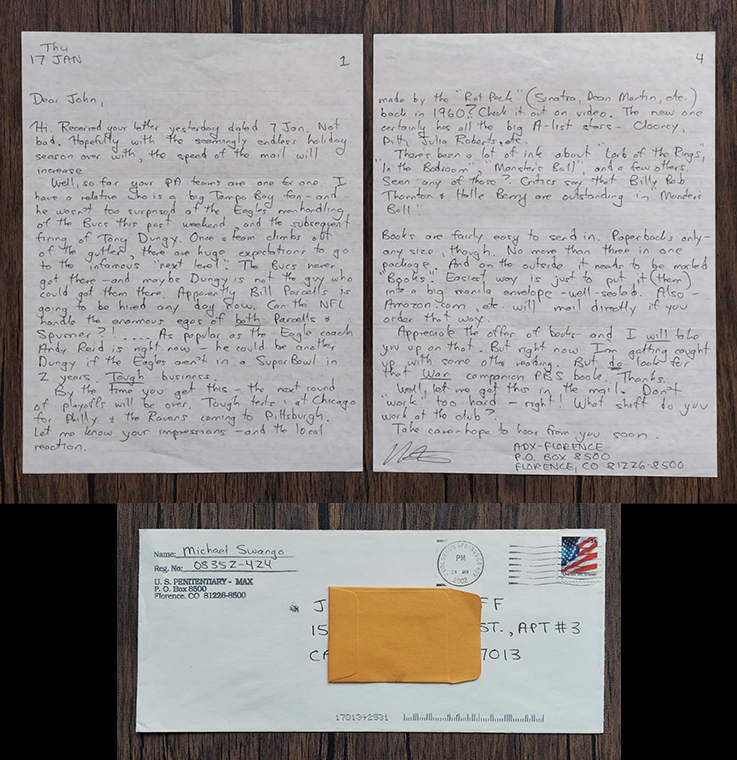 Thu
17 JAN
1
Dear John,
Hi. Received your letter yesterday dated 7 Jan. Not
bad. Hopefully with the seemingly endless holiday
season over with the speed of the mail will
increase.
Well, so far your PA teams are one for one. I
have a relative who is a big Tampa Bay fan - and
he wasn't too surprised at the Eagles manhandling
of the Bucs this past weekend, and the subsequent
firing of Tony Dungy. Once a team climbs out
of the gutter, there are huge expectations to go
to the infamous "next level". The Bucs never
got there - and maybe Dungy is not the guy who
could get them there. Apparently Bill Parcells is
going to be hired any day now. Can the NFL
handle the enormous egos of both Parcells &
Spurrier?! .... As popular as the Eagle coach
Andy Reid is right now - he could be another
Dungy if the Eagles aren't in a SuperBowl in
2 years. Tough business.
By the time you get this - the next round
of playoffs will be over. Tough tests: at Chicago
for Philly & the Ravens coming to Pittsburgh.
Let me know your impressions - and the local
reaction.
4
made by the "Rat Pack" (Sinatra, Dean Martin, etc.)
back in 1960? Check it out on video. The new one
certainly has all the big A-list stars - Clooney,
Pitt, Julia Roberts, etc.
There's been a lot of ink about "Lord of the Rings",
"In the Bedroom", "Monster's Ball", and a few others.
Seen any of those? Critics say that Billy Bob
Thornton & Halle Berry are outstanding in "Monster's
Ball".
Books are fairly easy to send in. Paperbacks only -
any size, though. No more than three in one
package. And on the outside, it needs to be marked
"Books". Easiest way is just to put it (them)
into a big manila envelope - well-sealed. Also -
Amazon.com, etc. will mail directly if you
order that way.
Appreciate the offer of books - and I will take
you up on that. But right now I'm getting caught
up with some other reading. But do look for
that War companion PBS book. Thanks.
Well, let me get this in the mail. Don't
work "too hard" - right! What shift do you
work at the club?
Take care - hope to hear from you soon.
ADX-FLORENCE
P.O. BOX 8500
FLORENCE, CO 81226-8500
Name: Michael Swango
Reg. No: 08352-424
U.S. PENITENTIARY - MAX
P. O. Box 8500
Florence. CO 81226-8500
COLORADO SPRINGS
PM
JAN
2002
J FF
15 ST., APT #3
CA 7013
17013+2531